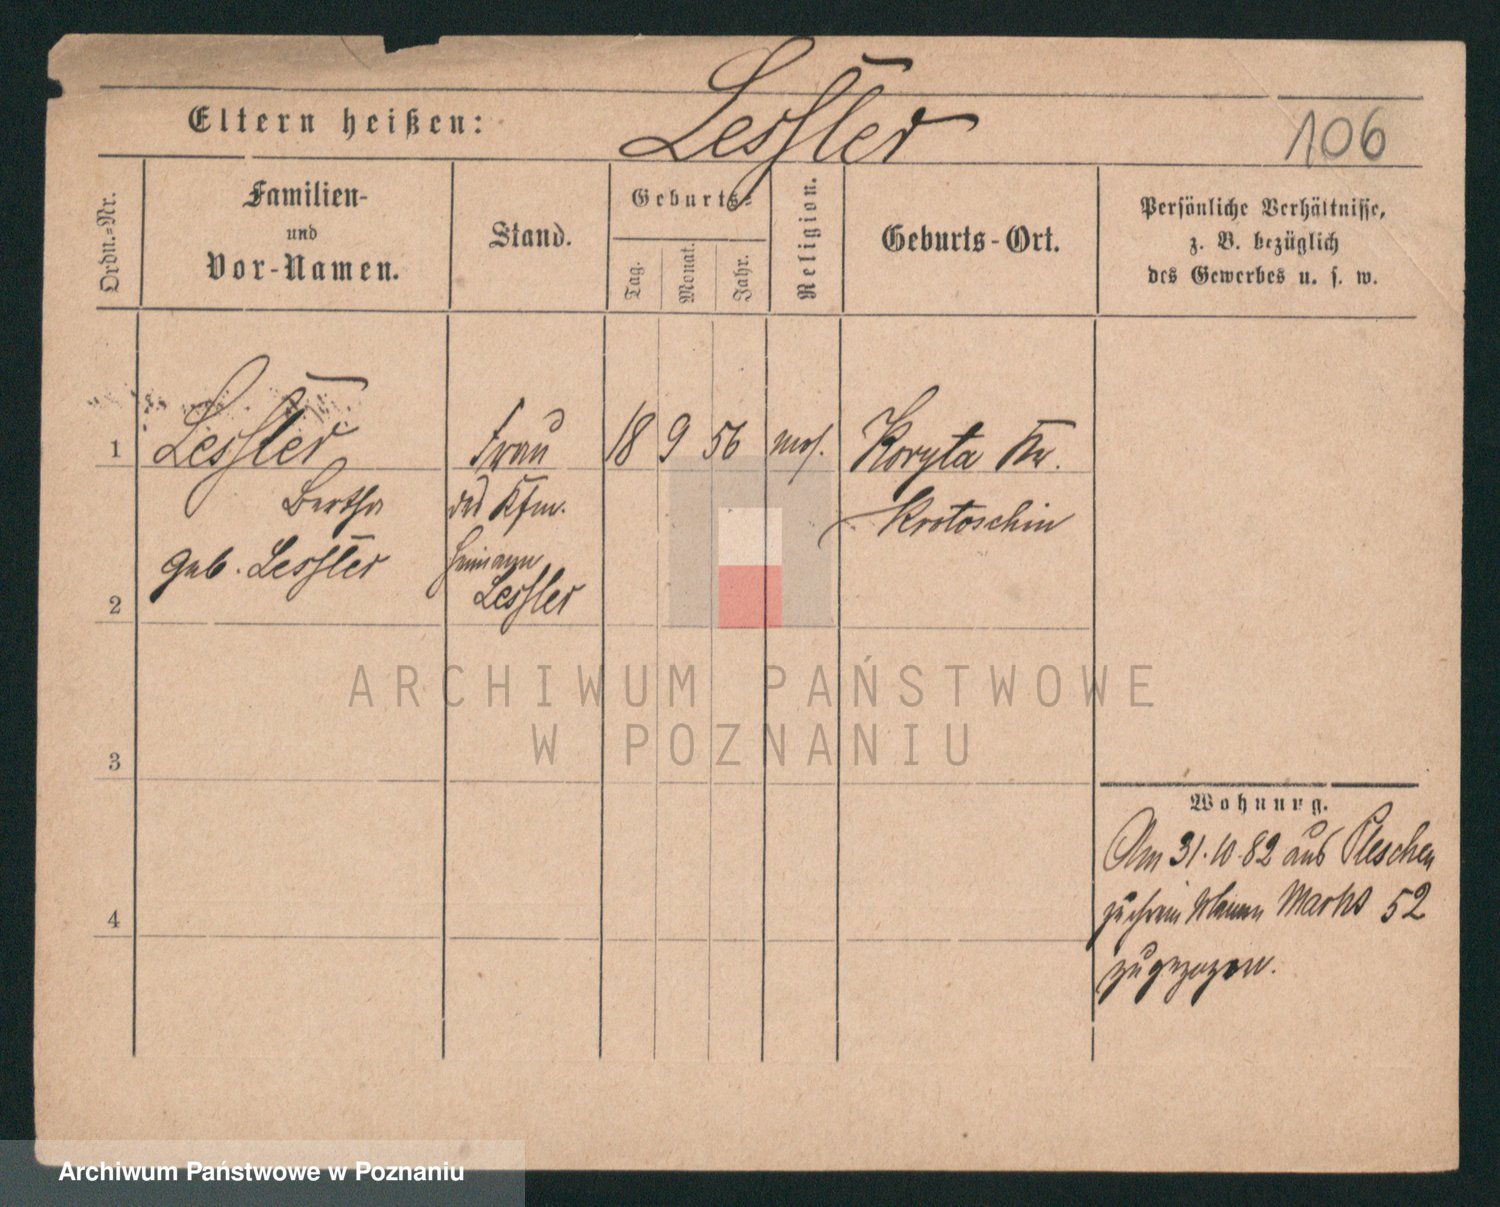 Lessler
106
Eltern heißen:
Ordn.-Nr.
Familien-
und
Vor-Namen.
Stand.
Geburts-
Tag.
Monat.
Jahr.
Religion.
Geburts-Ort.
Persönliche Verhältnisse,
z. B. bezüglich
des Gewerbes u. s. w.
1
Lessler
Frau
18 9 56
mos.
Koryta Kr.
Bertha
des Kfm.
Krotoschin
geb. Lessler
Heimann
Lessler
2
3
4
ARCHIWUM PAŃSTWOWE
W POZNANIU
Wohnung.
Am 31.10.82 aus Pleschen
Markt 52
zugezogen.
Archiwum Państwowe w Poznaniu